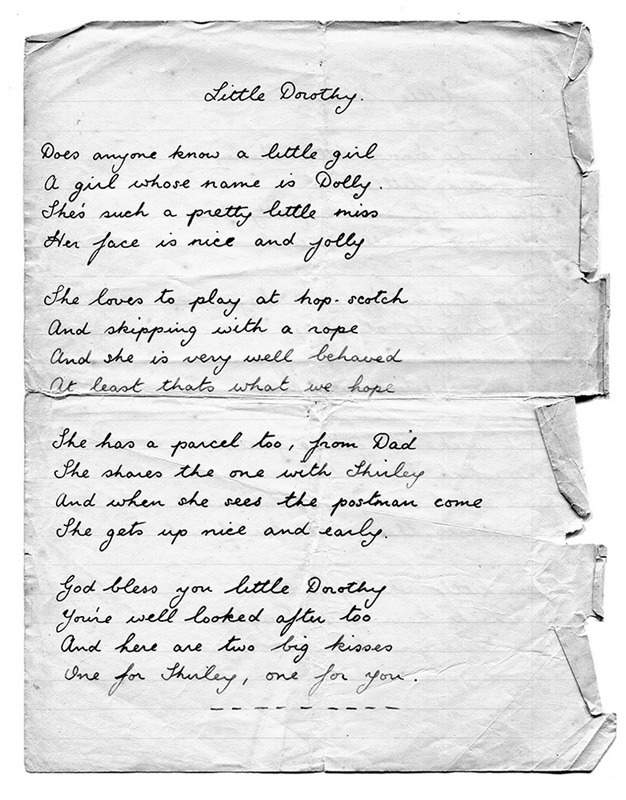 Little Dorothy.
Does anyone know a little girl
A girl whose name is Dolly.
She's such a pretty little miss
Her face is nice and jolly
She loves to play at hop-scotch
And skipping with a rope
And she is very well behaved
At least thats what we hope
She has a parcel too, from Dad
She shares the one with Shirley
And when she sees the postman come
She gets up nice and early.
God bless you little Dorothy
You're well looked after too
And here are two big kisses
One for Shirley, one for you.